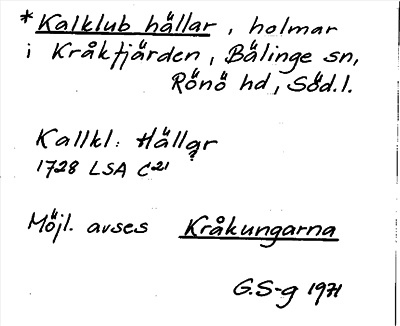 *Kalklub hällar, holmar
i Kråkfjärden, Bälinge sn,
Rönö hd, Söd.l.
Kallkl: Hällar
1728 LSA C21
Möjl. avses Kråkungarna
G.S-g 1971